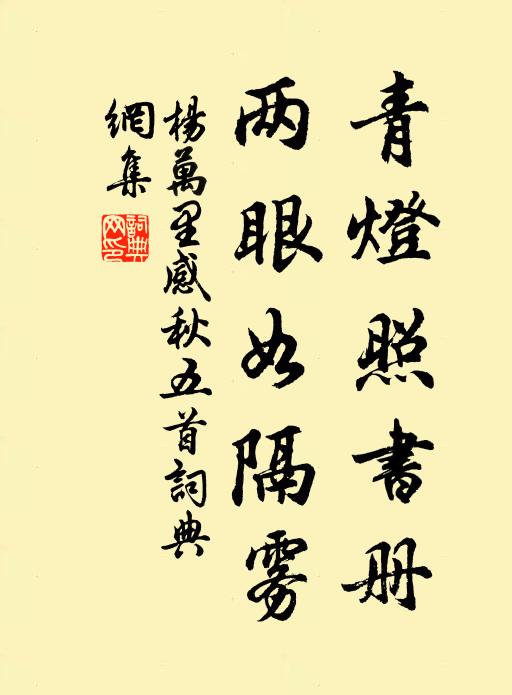 青燈照書册
两眼如隔雾
楊萬里感秋五首詞典
網集
詞典網印